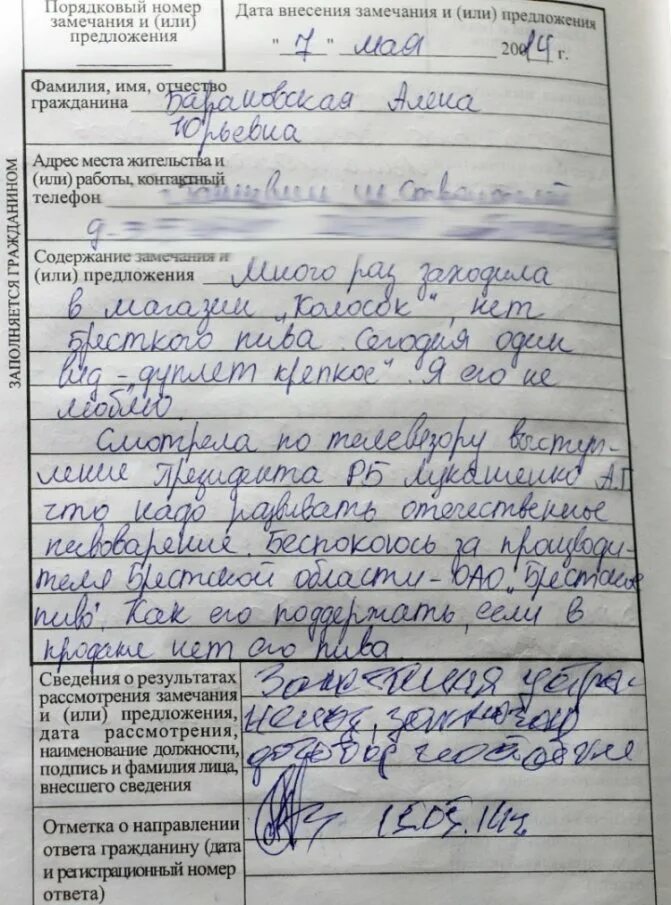 Порядковый номер
замечания и (или)
предложения
Дата внесения замечания и (или) предложения
"7" мая 2014 г.
ЗАПОЛНЯЕТСЯ ГРАЖДАНИНОМ
Фамилия, имя, отчество
гражданина Барановская Алена
Юрьевна
Адрес места жительства и
(или) работы, контактный
телефон
д.
Содержание замечания и
(или) предложения Много раз заходила
в магазин „Колосок", нет
Бресткого пива. Сегодня один
вид – „дуплет крепкое". Я его не
люблю.
Смотрела по телевизору выступ-
ление Президента РБ Лукашенко А.Г
что надо развивать отечественное
пивоварение. Беспокоюсь за производи-
теля Брестской области – ОАО „Брестское
пиво". Как его поддержать, если в
продаже нет его пива.
Сведения о результатах
рассмотрения замечания
и (или) предложения,
дата рассмотрения,
наименование должности,
подпись и фамилия лица,
внесшего сведения
Замечания устра-
нены, заключен
договор
15.05.14г.
Отметка о направлении
ответа гражданину (дата
и регистрационный номер
ответа)